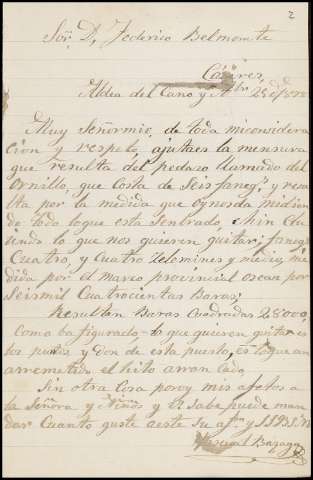 2
Sor. D. Federico Belmonte
Cáceres,
Aldea del Cano y 28 de
Muy Señor mio, de toda mi considera
cion y respeto, ajusta es la mensura
que resulta del pedazo llamado del
Ornillo, que Costa de Seis faneg.s y resu
lta por la medida que oy
de todo lo que esta Senbrado, e hin Clu
iendo lo que nos quieren quitar; faneg.s
Cuatro, y Cuatro Zelemines y medio, me
dida por el Marco provincial o sean por
Seismil Cuatrocientas Baras;
Resultan Baras Cuadradas 28000,
Como ba figurado lo que quieren quitar es
los puntos y don de esta puesto, es lo que an
arremetido el hito arran Cado,
Sin otra Cosa por oy mis afetos a
la Señora y Niños y U. Sabe puede man
dar Cuanto guste a este Su
Bazaga